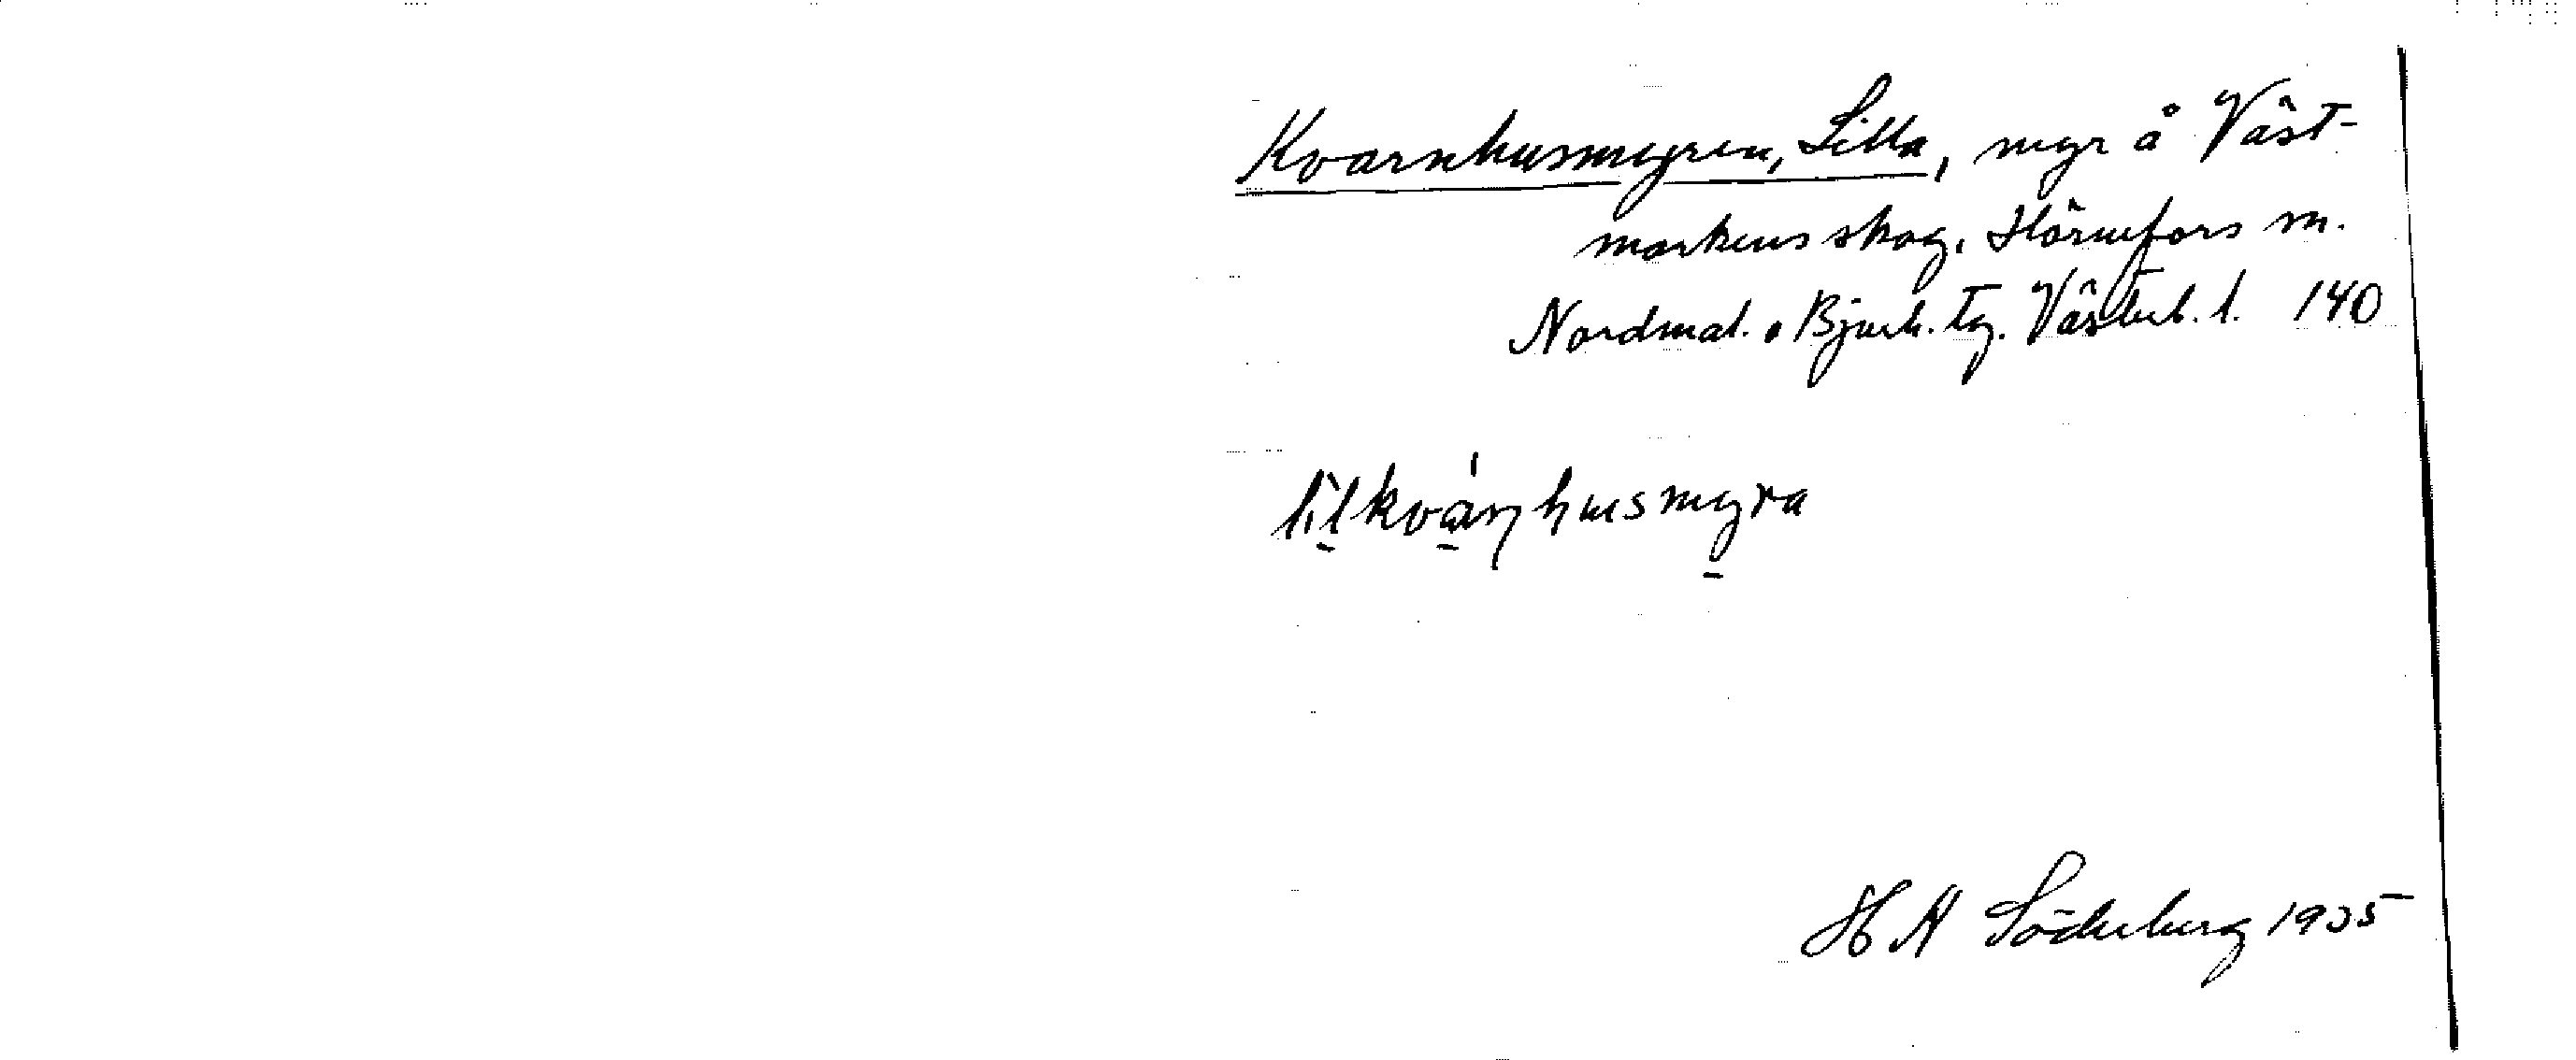 Kvarnhusmyren, Lilla, myr å Väst-
markens skog, Hörnefors m.
Nordmal. o Bjurh. tg. Västerb. l. 140
lìlkváṇhusmyra
H A Söderberg 1935